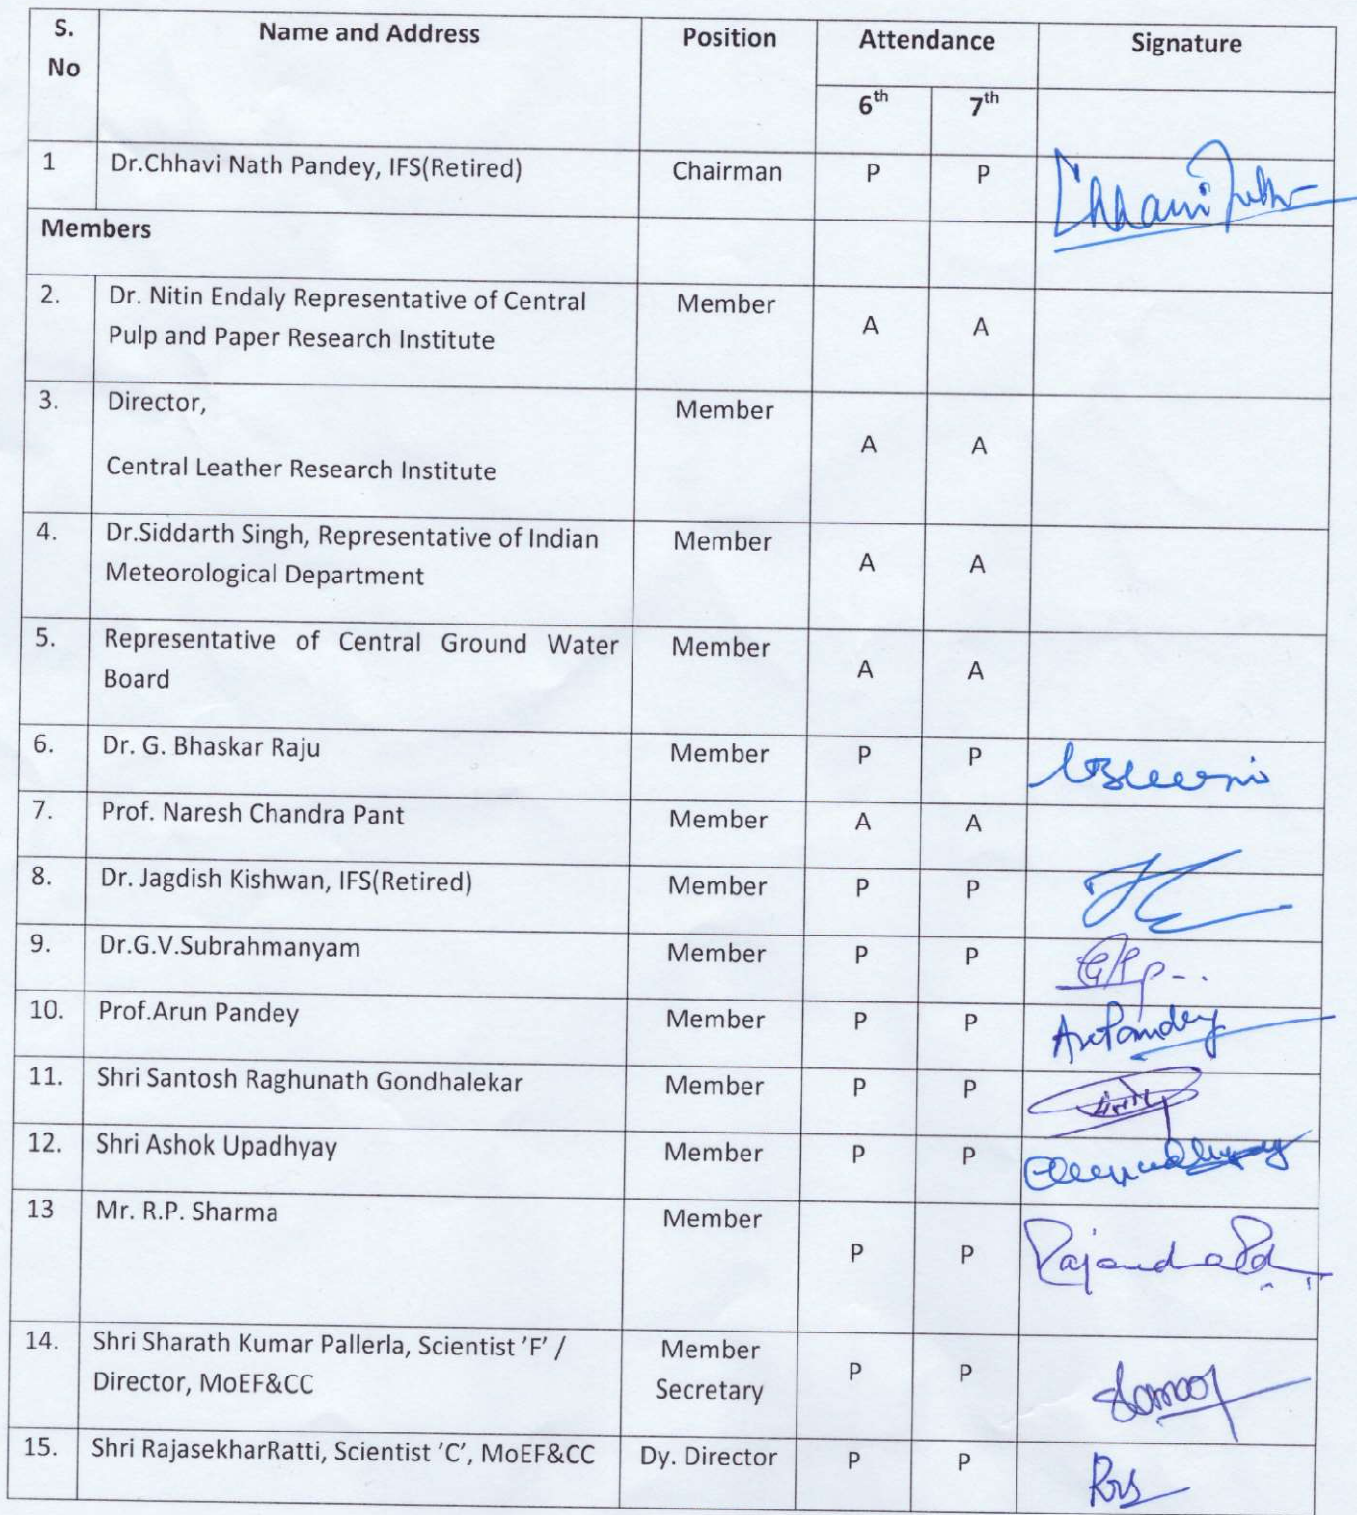 S. No Name and Address Position Attendance Signature
6th 7th
1 Dr.Chhavi Nath Pandey, IFS(Retired) Chairman P P
Members
2. Dr. Nitin Endaly Representative of Central Pulp and Paper Research Institute Member A A
3. Director,
Central Leather Research Institute Member A A
4. Dr.Siddarth Singh, Representative of Indian Meteorological Department Member A A
5. Representative of Central Ground Water Board Member A A
6. Dr. G. Bhaskar Raju Member P P
7. Prof. Naresh Chandra Pant Member A A
8. Dr. Jagdish Kishwan, IFS(Retired) Member P P
9. Dr.G.V.Subrahmanyam Member P P
10. Prof.Arun Pandey Member P P
11. Shri Santosh Raghunath Gondhalekar Member P P
12. Shri Ashok Upadhyay Member P P
13 Mr. R.P. Sharma Member P P
14. Shri Sharath Kumar Pallerla, Scientist 'F' / Director, MoEF&CC Member Secretary P P
15. Shri RajasekharRatti, Scientist 'C', MoEF&CC Dy. Director P P